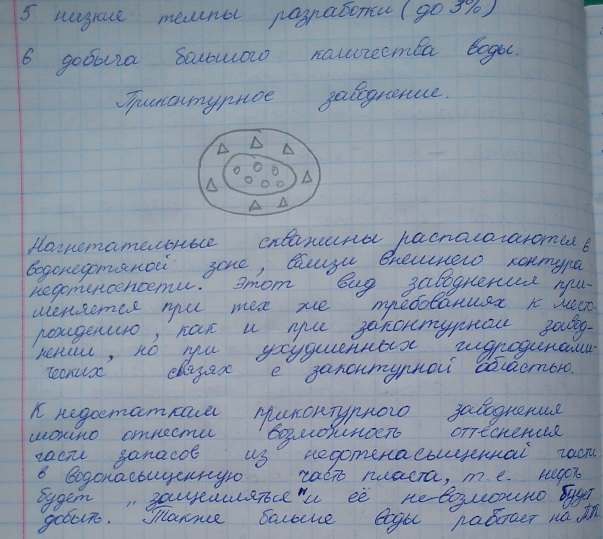 5 низкие темпы разработки (до 3%)
6 добыча большого количества воды.
Приконтурное заводнение.
Нагнетательные скважины располагаются в
водонефтяной зоне, вблизи внешнего контура
нефтеностости. Этот вид заводнения при-
меняется при тех же требованиях к место-
рождению, как и при законтурном завод-
нении, но при ухудшенных гидродинами-
ческих связях с законтурной областью.
К недостаткам приконтурного заводнения
можно отнести возможность оттеснения
части запасов из нефтенасыщенной части
в водонасыщенную часть пласта, т.е. нефть
будет „защемляться" и её невозможно будет
добыть. Также больше воды работает на